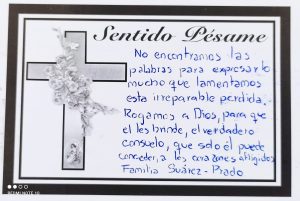 Sentido Pésame
No encontramos las
palabras para expresar lo
mucho que lamentamos
esta irreparable perdida.
Rogamos a Dios, para que
el les brinde, el verdadero
consuelo, que solo él puede
conceder, a los corazones afligidos
Familia Suárez - Prado
REDMI NOTE 10